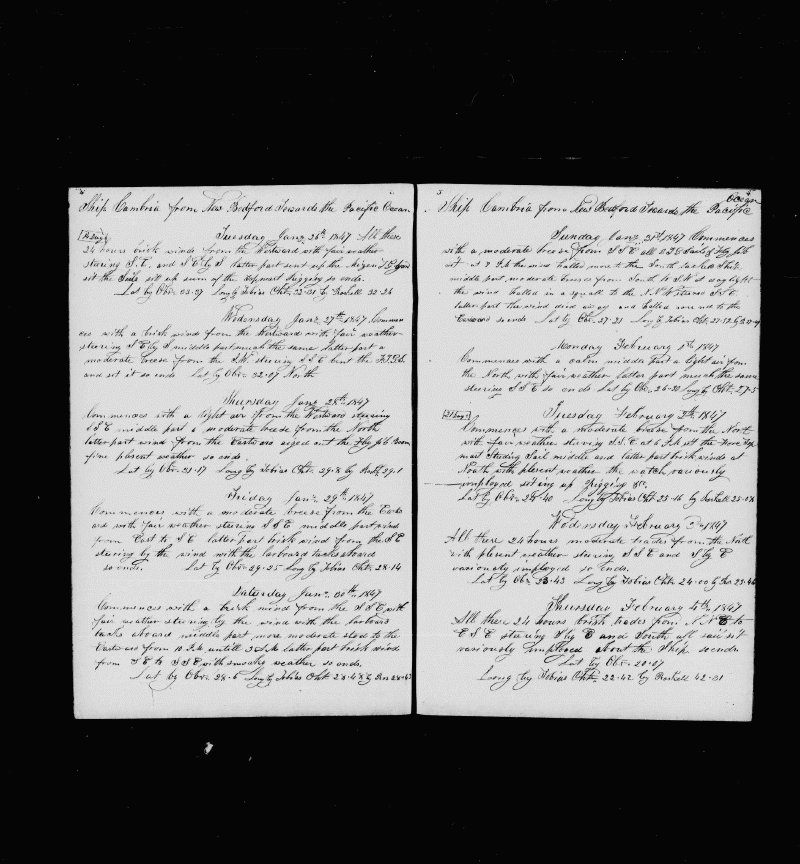 Ship Cambria from New Bedford Towards the Pacific Ocean
Tuesday Jany 26th 1847 All these
24 hours brisk winds from the Westward with fair weather
steering S.E. and S E by S latter part sent up the Mizen
set the Sails set up sum of the rigging so ends.
Lat by Obs. 33-27 Long by Tobias Chr. 32-31 by 32-26
Wednesday Jany 27th 1847 Commen
ces with a brisk wind from the Westward with fair weather
steering S E by S middle part much the same latter part a
moderate breese from the S.W. steering S S E bent the
and set it so ends Lat by Obs. 32-07 North
Thursday Jany 28th 1847
Commences with a light air from the Westward steering
S S E middle part a moderate breese from the North
latter part wind from the Eastward out the Flying jib boom
fine plesent weather so ends.
Lat by Obr. 31-17 Long by Tobias Chr. 29-8 by 29-1
Friday Jany 29th 1847
Commences with a moderate breese from the East
ard with fair weather steering S S E middle part wind
from East to S E latter part brisk wind from the S E
steering by the wind with the larboard tacks aboard
so ends. Lat by Obr 29-25 Long by Tobias Chr. 28-14
Saturday Jany 30th 1847
Commences with a brisk wind from the S S E with
fair weather steering by the wind with the larboard
tacks aboard middle part more moderate stood to the
Eastward from 10 P.M untill 3 A.M latter part brisk wind
from S E to S S E with weather so ends
Lat by Obr. 28-6 Long by Tobias Chr. 28-48 by 28-43
Ocean
Ship Cambria from New Bedford Towards the Pacific
Sunday Jany 31st 1847 Commences
with a moderate breese from S S E all
set at 7 P.M the wind halled more to the South tacked Ship
middle part moderate breeses from South to S.W at daylight
the wind halled in a squall to the N.W steered S S E
latter part the wind died away and halled round to the
Eastward so ends Lat by Obr. 27-21 Long by Tobias Chr. 27-12 by
Monday February 1st 1847
Commences with a calm middle part a light air from
the North with fair weather latter part much the same
steering S S E so ends Lat by Obr. 26-20 Long by Chr. 27-5
Tuesday February 2nd 1847
Commences with a moderate breese from the North
with fair weather steering S.S.E at 6 P.M set the Fore top
mast Studing Sail middle and latter part brisk winds at
North with plesent weather the watch variously
imployed setting up rigging &c.
Lat by Obr. 24-40 Long by Tobias Chr 25-16 by 25-08
Wednesday February 3rd 1847
All these 24 hours moderate trades from the East
with plesent weather steering S S E and S by E
variously imployed so ends.
Lat by Obr. 23-43 Long by Tobias Chr. 24-00 by 23-46
Thursday February 4th 1847
All these 24 hours brisk trades from N N E to
E S E steering S by E and South all sail set
variously imployed about the Ship so ends
Lat by Obr. 20-07
Long by Tobias Chr. 22-42 by 42-31